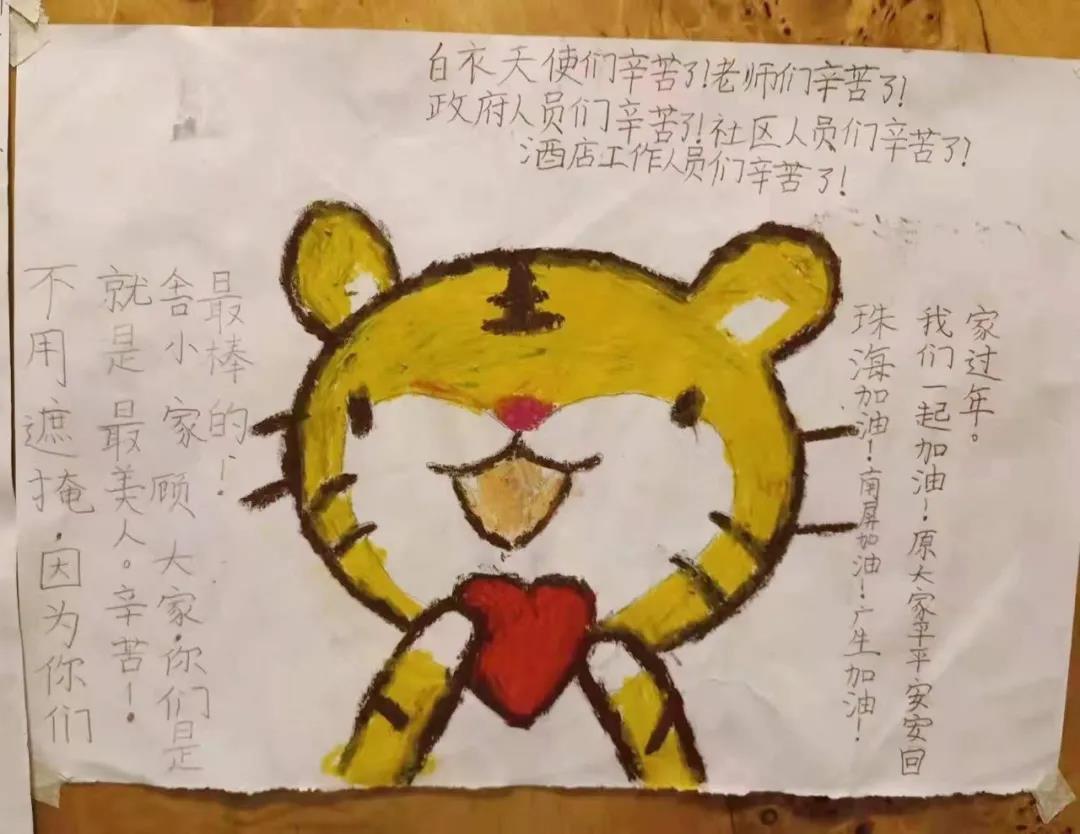 白衣天使们辛苦了!老师们辛苦了!
政府人员们辛苦了!社区人员们辛苦了!
酒店工作人员们辛苦了!
不用遮掩,因为你们
就是最美人。辛苦!
舍小家顾大家,你们是
最棒的!
珠海加油!南屏加油!广生加油!
我们一起加油!原大家平平安安回
家过年。